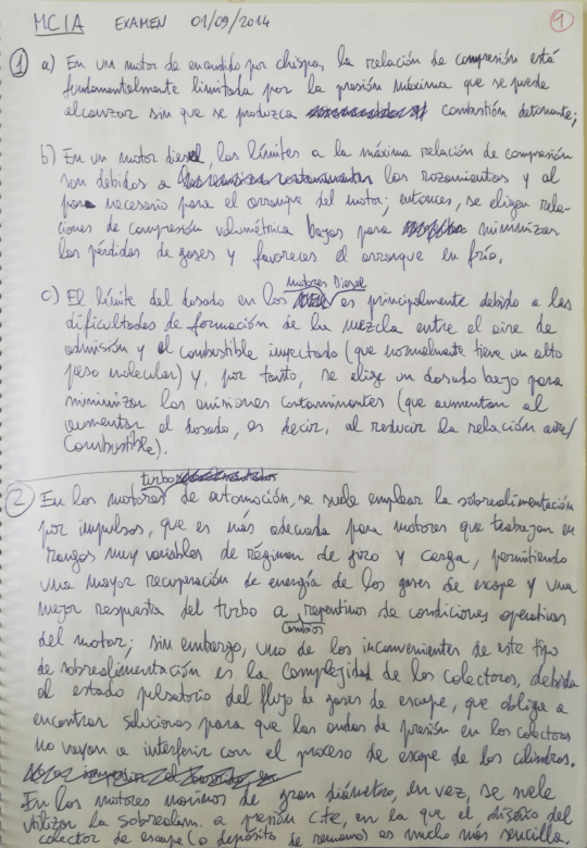 MCIA EXAMEN 01/09/2014 1
1 a) En un motor de encendido por chispa, la relación de compresión está
fundamentalmente limitada por la presión máxima que se puede
alcanzar sin que se produzca combustión detonante;
b) En un motor diesel, los límites a la máxima relación de compresión
son debidos a los rozamientos y al
par necesario para el arranque del motor; entonces, se eligen rela-
ciones de compresión volumétrica bajas para minimizar
las pérdidas de gases y favorecer el arranque en frío.
c) El límite del dosado en los motores Diesel es principalmente debido a las
dificultades de formación de la mezcla entre el aire de
admisión y el combustible inyectado (que normalmente tiene un alto
peso molecular) y, por tanto, se elige un dosado bajo para
minimizar las emisiones contaminantes (que aumentan al
aumentar el dosado, es decir, al reducir la relación aire/
combustible).
2 En los motores turbo de automoción, se suele emplear la sobrealimentación
por impulsos, que es más adecuada para motores que trabajan en
rangos muy variables de régimen de giro y carga, permitiendo
una mayor recuperación de energía de los gases de escape y una
mejor respuesta del turbo a cambios repentinos de condiciones operativas
del motor; sin embargo, uno de los inconvenientes de este tipo
de sobrealimentación es la complejidad de los colectores, debida
al estado pulsatorio del flujo de gases de escape, que obliga a
encontrar soluciones para que las ondas de presión en los colectores
no vayan a interferir con el proceso de escape de los cilindros.
En los motores marinos de gran diámetro, en vez, se suele
utilizar la sobrealim. a presión cte, en la que el diseño del
colector de escape (o depósito de remanso) es mucho más sencilla.